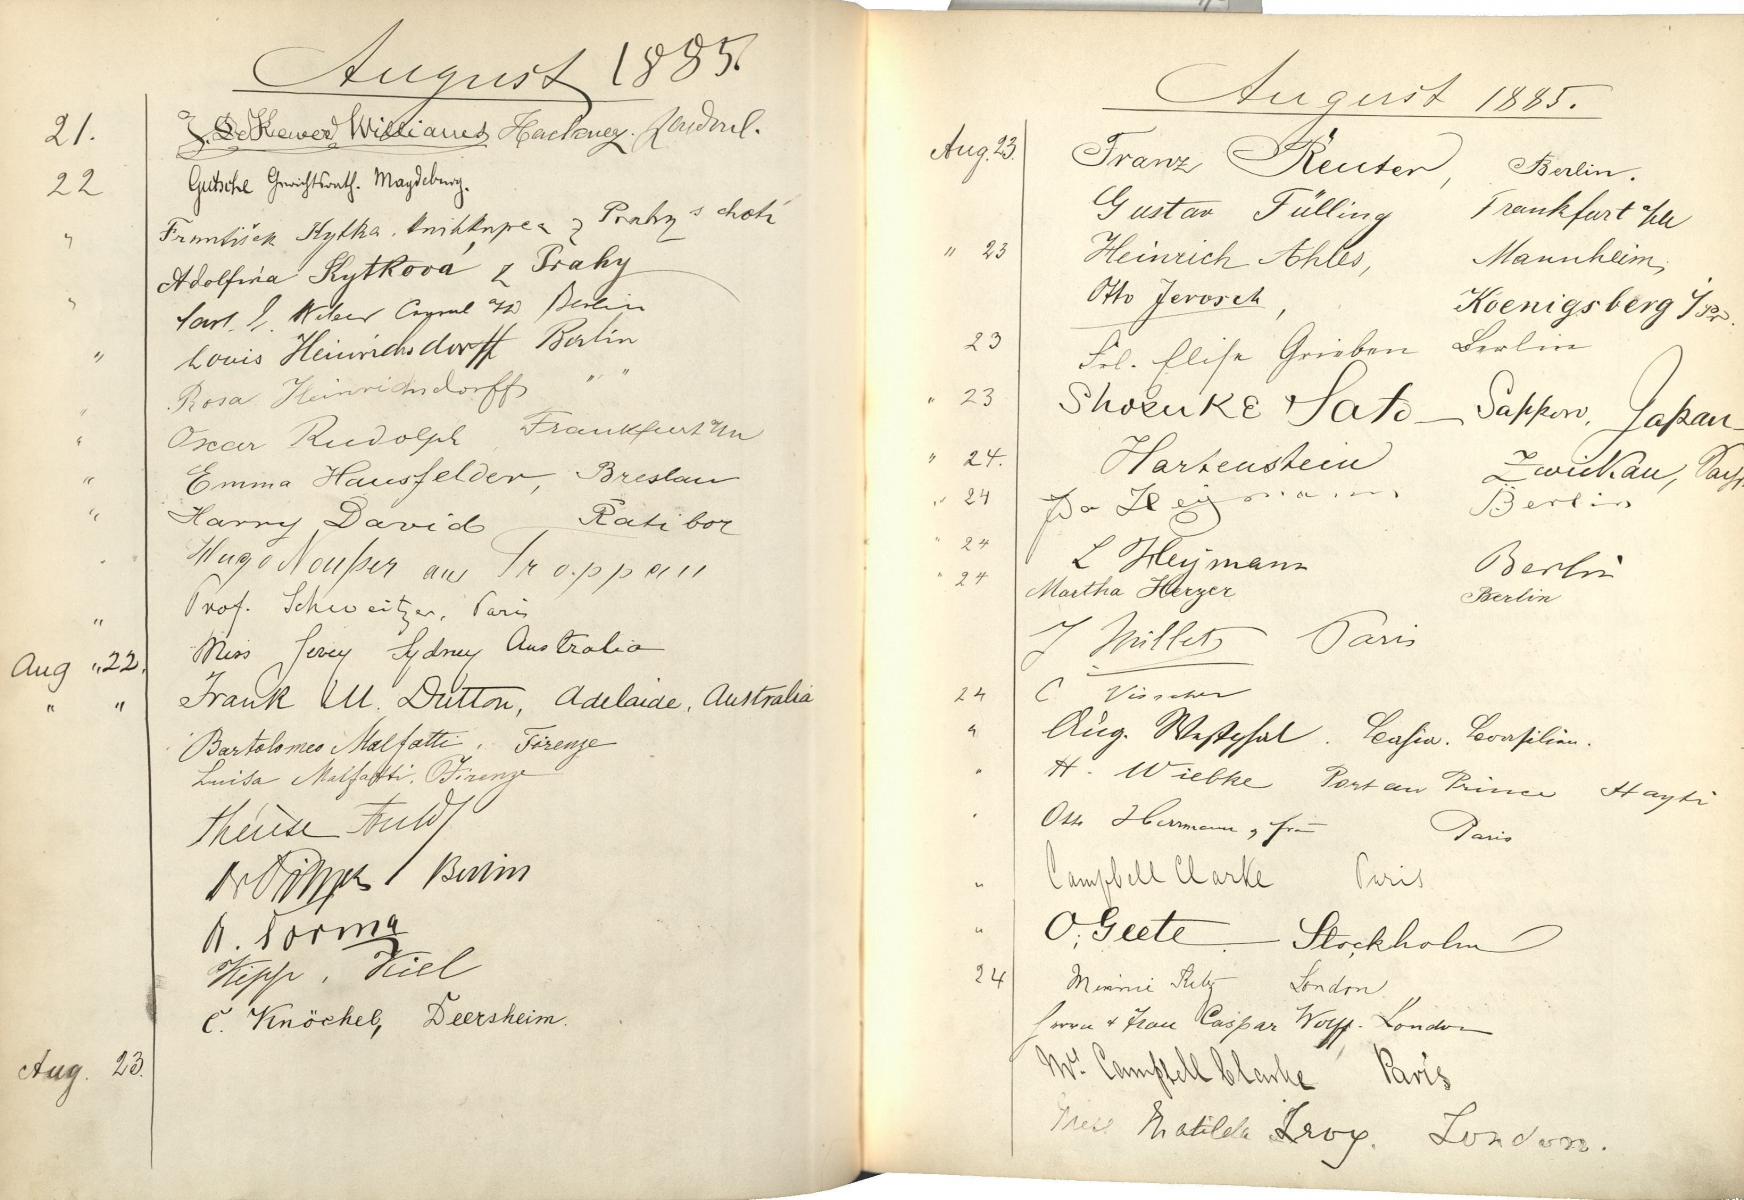 August 1885.
21. J. De Kewer Williams Hackney. London.
22 Gutsche Gerichtsrath. Magdeburg.
" František Kytka. knihkupec z Prahy s chotí
Adolfina Kytková z Prahy
" Carl Berlin
" Louis Heinrichsdorff Berlin
Rosa Heinrichsdorff " "
" Oscar Rudolph Frankfurt a/M
" Emma Hausfelder, Breslau
" Harry David Ratibor
Hugo aus Troppau
" Prof. Schweitzer, Paris
Aug "22. Miss Sydney Australia
" " Frank M. Dutton, Adelaide, Australia
Bartolomeo Malfatti, Firenze
Luisa Malfatti. Firenze
Therese
Dr Berlin
A. Torma
Kipp, Kiel
C. Knöchel, Deersheim.
Aug. 23.
August 1885.
Aug. 23. Franz Reuter, Berlin.
Gustav Fülling Frankfurt a/M
" 23 Heinrich Ahles, Mannheim,
Otto Jerosch, Koenigsberg i/Pr.
23 Frl. Elise Grieben Berlin
" 23 Shosuke Sato - Sapporo, Japan
" 24. Hartenstein Zwickau,
" 24 Heymann Berlin
" 24 L Heymann Berlin
" 24 Martha Herzer Berlin
J Paris
24 C Visscher
" Aug. Westphal.
" H. Wiebke Port au Prince Hayti
" Otto Herrmann, Paris
" Campbell Clarke Paris
" O. Geete - Stockholm
24 Minnie London
Herrn & Frau Caspar Wolff. London
Mrs Campbell Clarke Paris
Miss Matilda Levy. London.